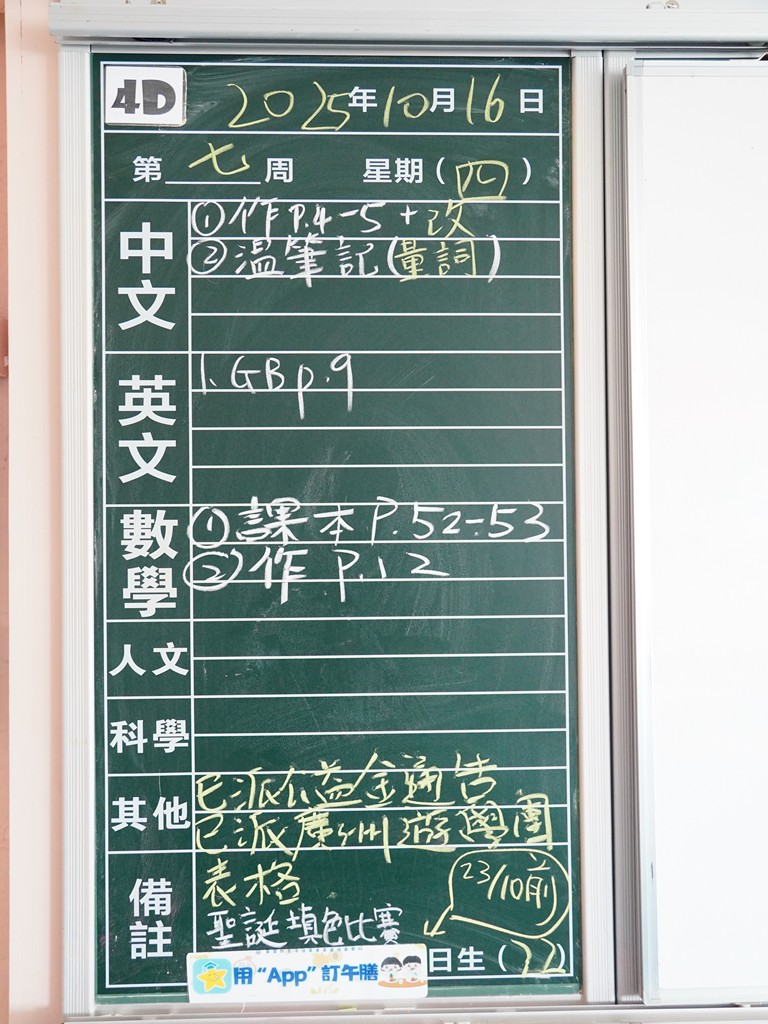 4D 2025年10月16日
第七周 星期(四)
中文
①作P.4-5+改
②溫筆記(量詞)
英文
1. GB p.9
數學
①課本P.52-53
②作P.12
人文
科學
其他
已派公益金通告
已派廣州遊學團
備註
表格
23/10前
聖誕填色比賽
用“App”訂午膳
日生(22)